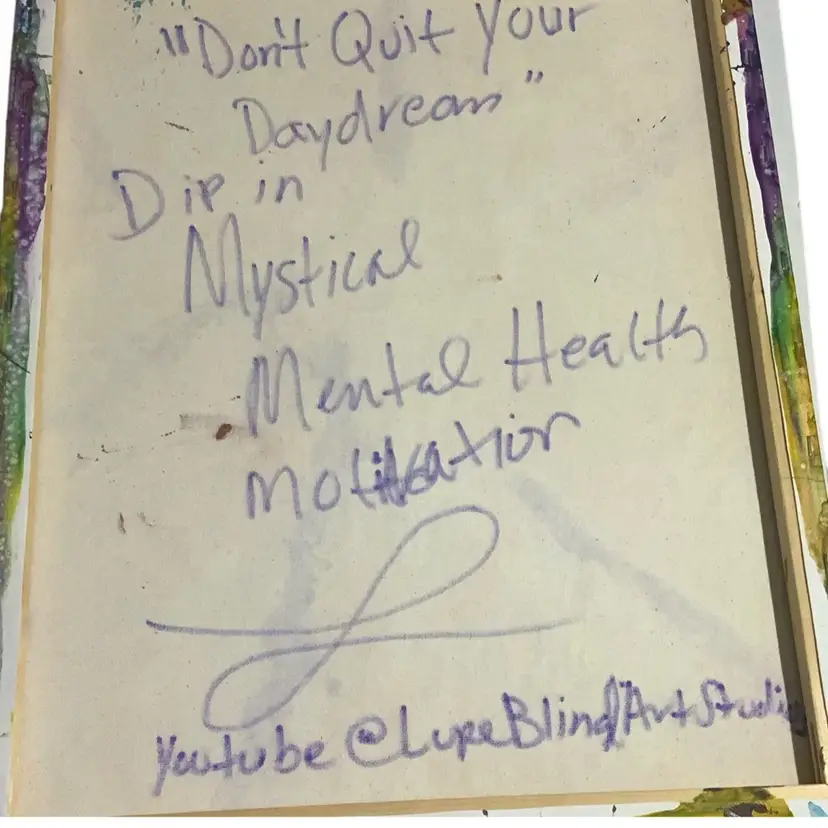 "Don't Quit Your
Daydream"
Dip in
Mystical
Mental Health
Motivation
Youtube @LupeBlindArtStudio